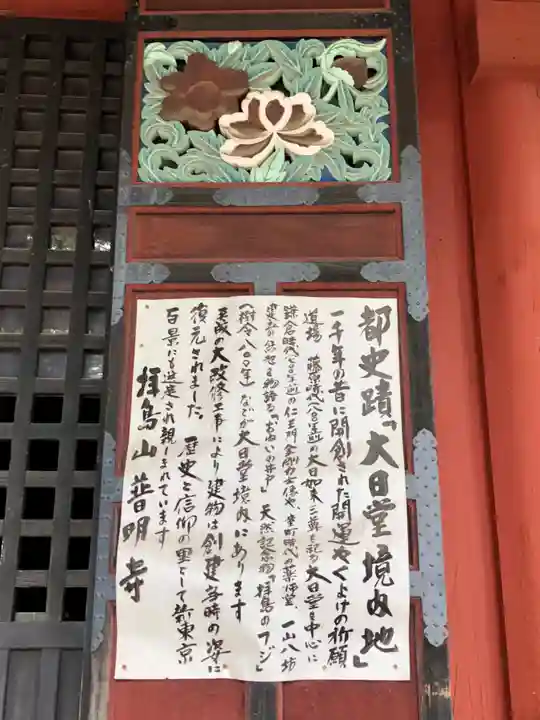 都史蹟「大日堂境内地」
一千年の昔に開創された開運やくよけの祈願
道場 藤原時代(八八〇年前)の大日如来三尊を祀る大日堂を中心に
鎌倉時代七〇〇年前の仁王門金剛力士像や、室町時代の薬師堂、一山八坊
建立の伝説を物語る「おねいの井戸」天然記念物「拝島のフジ」
(樹令八〇〇年)などが大日堂境内にあります
平成の大改修工事により建物は創建当時の姿に
復元されました。歴史と信仰の里として新東京
百景にも選定され親しまれています
拝島山普明寺